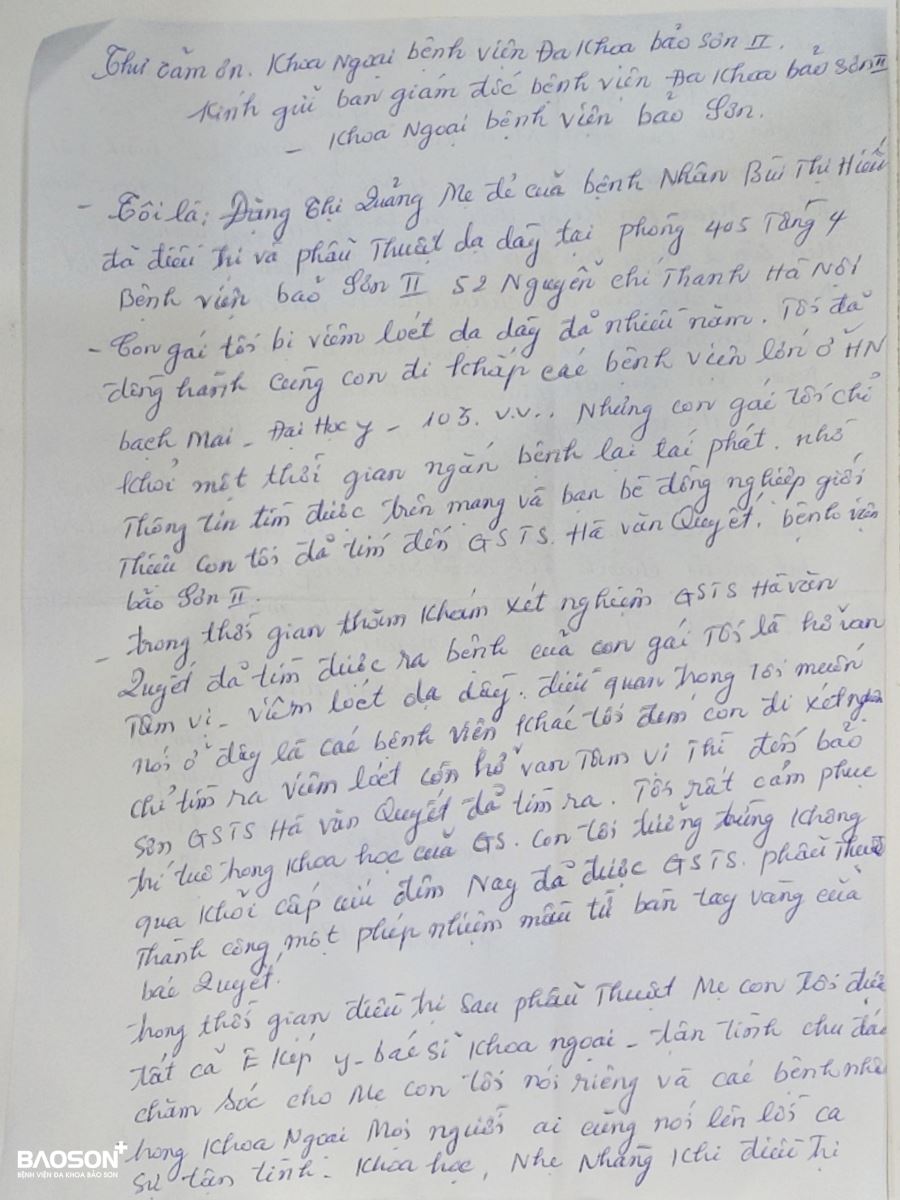 Thư cảm ơn. Khoa Ngoại bệnh viện Đa Khoa bảo Sơn II.
Kính gửi ban giám đốc bệnh viện Đa Khoa bảo Sơn II
- Khoa Ngoại bệnh viện bảo Sơn.
- Tôi là: Đặng Thị Quảng Mẹ đẻ của bệnh Nhân Bùi Thị Hiếu
đã điều trị và phẫu Thuật dạ dày tại phòng 405 Tầng 4
Bệnh viện bảo Sơn II 52 Nguyễn chí Thanh Hà Nội
- Con gái tôi bị viêm loét dạ dày đã nhiều năm. Tôi đã
đồng hành cùng con đi khắp các bệnh viện lớn ở HN
bạch Mai - Đại Học y - 103. v.v... Nhưng con gái tôi chỉ
khỏi một thời gian ngắn bệnh lại tái phát. nhờ
Thông tin tìm được trên mạng và bạn bè đồng nghiệp giới
Thiệu con tôi đã tìm đến GSTS. Hà văn Quyết. bệnh viện
bảo Sơn II.
- trong thời gian thăm khám xét nghiệm GSTS Hà văn
Quyết đã tìm được ra bệnh của con gái Tôi là hở van
Tâm vị - viêm loét dạ dày. điều quan trọng Tôi muốn
nói ở đây là các bệnh viện khác tôi đem con đi xét nghiệm
chỉ tìm ra viêm loét còn hở van Tâm vị Thì đến bảo
Sơn GSTS Hà văn Quyết đã tìm ra. Tôi rất cảm phục
trí tuệ trong khoa học của GS. Con tôi tưởng trừng không
qua khỏi cấp cứu đêm Nay đã được GSTS. phẫu Thuật
Thành công, một phép nhiệm mầu từ bàn tay vàng của
bác Quyết.
trong thời gian điều trị sau phẫu Thuật Mẹ con Tôi được
tất cả Ê kíp y - bác sĩ khoa ngoại - tận tình chu đáo
chăm sóc cho Mẹ con tôi nói riêng và các bệnh nhân
trong Khoa Ngoại Mọi người ai cũng nói lên lời ca
sự tận tình. Khoa học, Nhẹ Nhàng Khi điều trị
BAOSON+
BỆNH VIỆN ĐA KHOA BẢO SƠN